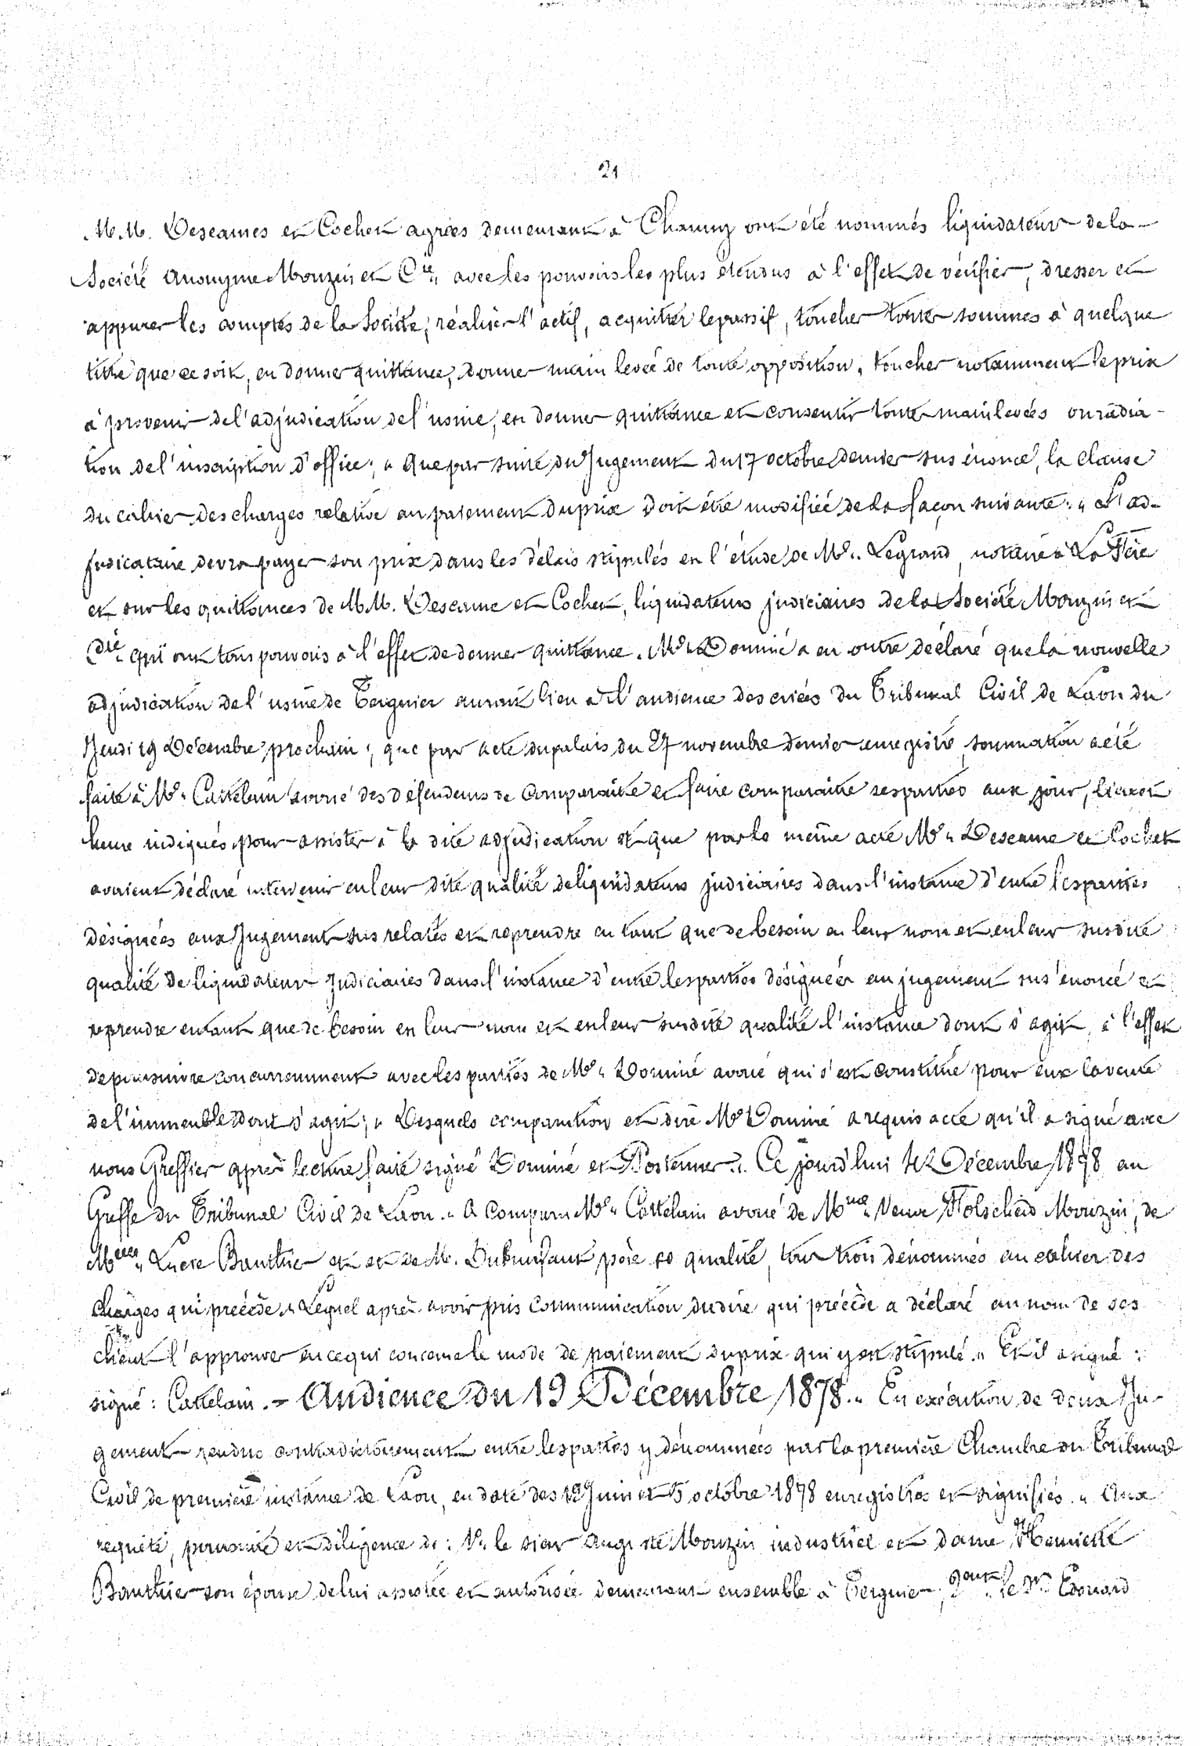 21
M.M. Descaines et Cochet agréés demeurant à Chauny ont été nommés liquidateurs de la
Société Anonyme Mouzin et Cie, avec les pouvoirs les plus étendus à l'effet de vérifier, dresser et
appurer les comptes de la Société, réaliser l'actif, acquitter le passif, toucher toutes sommes à quelque
titre que ce soit, en donner quittance, donner main levée de toute opposition, toucher notamment le prix
à provenir de l'adjudication de l'usine, en donner quittance et consentir toutes mainlevées ou radia-
tion de l'inscription d'office; " Que par suite du Jugement du 17 octobre dernier sus énoncé, la clause
du cahier des charges relative au paiement du prix doit être modifiée de la façon suivante: " L'ad-
judicataire devra payer son prix dans les délais stipulés en l'étude de Me. Legrand, notaire à La Fère
et sur les quittances de M.M. Descaine et Cochet, liquidateurs judiciaires de la Société Mouzin et
Cie qui ont tous pouvoirs à l'effet de donner quittance. Me Dominé a en outre déclaré que la nouvelle
adjudication de l'usine de Tergnier aurait lieu à l'audience des criées du Tribunal Civil de Laon du
Jeudi 19 Décembre prochain; que par acte du palais du 27 novembre dernier enregistré, sommation a été
faite à Me. Cattelain avoué des défendeurs de comparaître et faire comparaître ses parties aux jour, lieu et
heure indiqués pour assister à la dite adjudication et que par le même acte Me. Descaine et Cochet
avaient déclaré intervenir en leur dite qualité de liquidateurs judiciaires dans l'instance d'entre les parties
désignées aux Jugements sus relatés et reprendre en tant que de besoin en leur nom et en leur susdite
qualité de liquidateurs Judiciaires dans l'instance d'entre les parties désignées au jugement sus énoncé et
reprendre en tant que de besoin en leur nom et en leur susdite qualité l'instance dont s'agit, à l'effet
de poursuivre concurremment avec les parties de Me. Dominé avoué qui s'est constitué pour eux la vente
de l'immeuble dont s'agit; " Desquels comparution et dire Me Dominé a requis acte qu'il a signé avec
nous Greffier après lecture faite signé Dominé et . Ce jourd'hui 12 Décembre 1878 au
Greffe du Tribunal Civil de Laon. " A comparu Me. Cattelain avoué de Mme Veuve Holscheid Mouzin, de
Mme. Lucie Bauthier et et de M. père es qualité, tous trois dénommés au cahier des
charges qui précède " Lequel après avoir pris communication du dire qui précède a déclaré au nom de ses
clients l'approuver en ce qui concerne le mode de paiement du prix qui y est stipulé. " Et il a signé :
signé : Cattelain. - Audience du 19 Décembre 1878. " En exécution de deux Ju-
gements rendus contradictoirement entre les parties y dénommées par la première Chambre du Tribunal
Civil de première instance de Laon, en date des 12 Juin et 5 octobre 1878 enregistrés et signifiés. " Aux
requête, poursuite et diligence de : 1° le sieur Auguste Mouzin industriel et dame Henriette
Bauthier son épouse de lui assistée et autorisée demeurant ensemble à Tergnier, le Mr Edouard